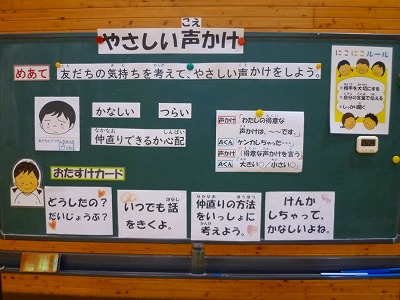 やさしい声かけ
こえ
めあて
友だちの気持ちを考えて、やさしい声かけをしよう。
にこにこルール
相手を大切にする
自分の言葉で伝える
しっかり聞く
かなしい
つらい
なかなお
しんぱい
仲直りできるか心配
Aくん
声かけ「わたしの得意な
声かけは、～です。」
Aくん「ケンカしちゃった…」
声かけ「得意な声かけを言う」
Aくん 大きい○／小さい○
おたすけカード
どうしたの?
だいじょうぶ?
はなし
いつでも話
をきくよ。
なかなお
ほうほう
仲直りの方法
をいっしょに
かんが
考えよう。
けんか
しちゃって、
かなしいよね。